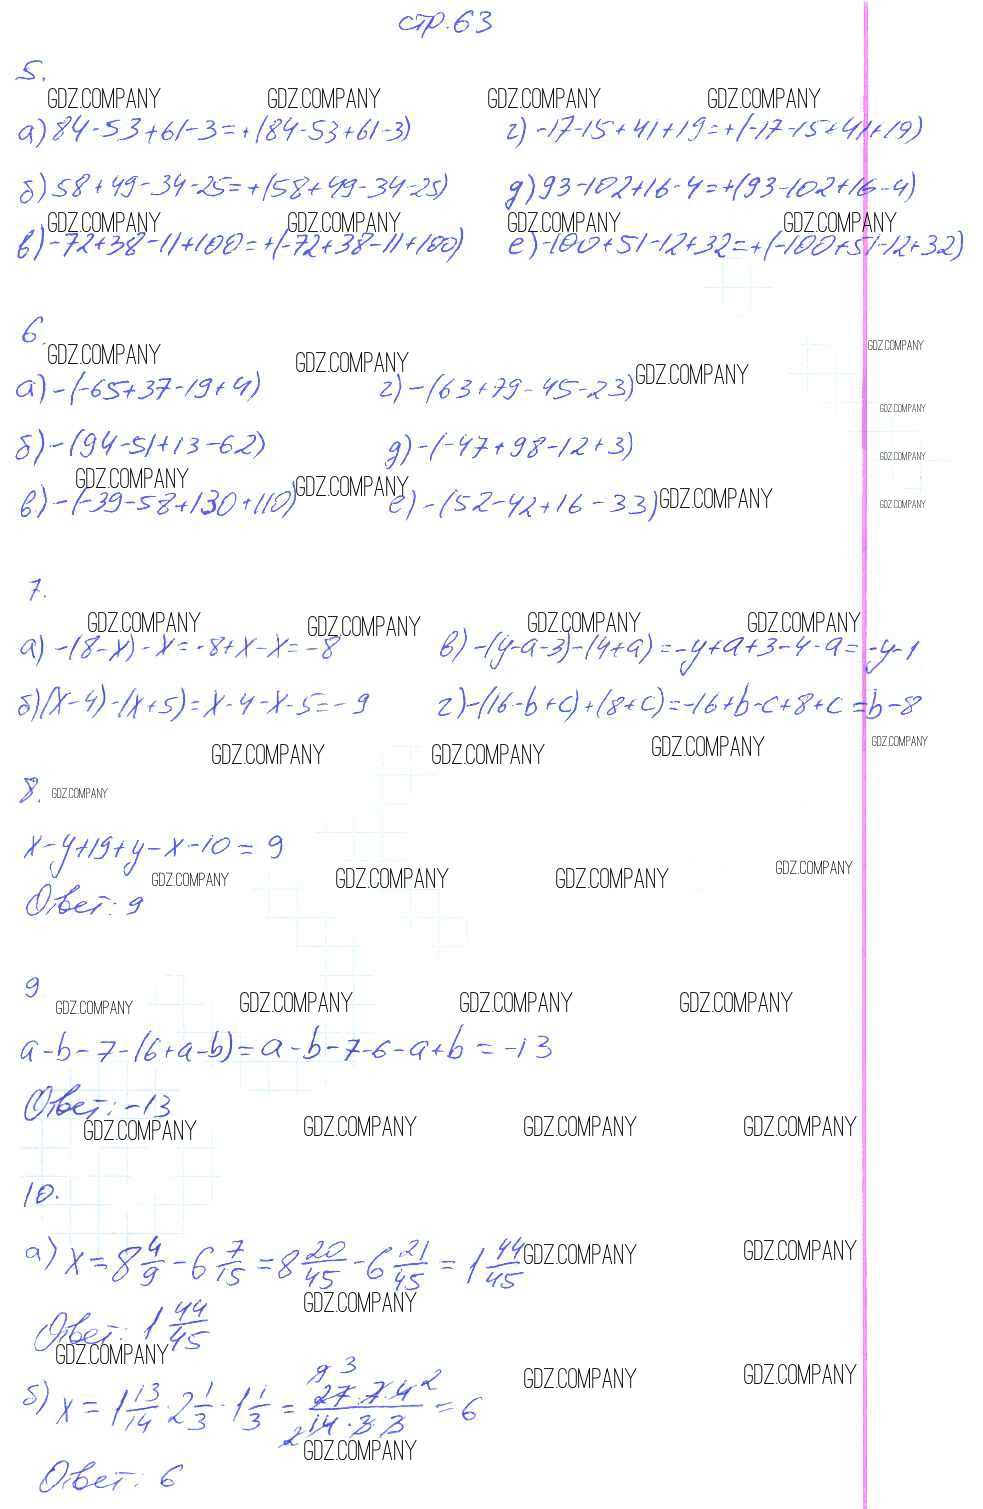 стр. 63
5.
GDZ.COMPANY GDZ.COMPANY GDZ.COMPANY GDZ.COMPANY
а) 84-53+61-3=+(84-53+61-3) г) -17-15+41+19=+(-17-15+41+19)
б) 58+49-34-25=+(58+49-34-25) д) 93-102+16-4=+(93-102+16-4)
GDZ.COMPANY GDZ.COMPANY GDZ.COMPANY GDZ.COMPANY
в) -72+38-11+100=+(-72+38-11+100) е) -100+51-12+32=+(-100+51-12+32)
6.
GDZ.COMPANY GDZ.COMPANY GDZ.COMPANY GDZ.COMPANY
а) -(-65+37-19+4) г) -(63+79-45-23)
GDZ.COMPANY
б) -(94-51+13-62) д) -(-47+98-12+3)
GDZ.COMPANY
GDZ.COMPANY GDZ.COMPANY GDZ.COMPANY GDZ.COMPANY
в) -(-39-58+130+110) е) -(52-42+16-33)
7.
GDZ.COMPANY GDZ.COMPANY GDZ.COMPANY GDZ.COMPANY
а) -(8-x)-x=-8+x-x=-8 в) -(y-a-3)-(4+a)=-y+a+3-4-a=-y-1
б) (x-4)-(x+5)=x-4-x-5=-9 г) -(16-b+c)+(8+c)=-16+b-c+8+c=b-8
GDZ.COMPANY GDZ.COMPANY GDZ.COMPANY GDZ.COMPANY
8. GDZ.COMPANY
x-y+19+y-x-10=9
GDZ.COMPANY GDZ.COMPANY GDZ.COMPANY GDZ.COMPANY
Ответ: 9
9
GDZ.COMPANY GDZ.COMPANY GDZ.COMPANY GDZ.COMPANY
a-b-7-(6+a-b)=a-b-7-6-a+b=-13
Ответ: -13
GDZ.COMPANY GDZ.COMPANY GDZ.COMPANY GDZ.COMPANY
10.
а) x=8 4/9 - 6 7/15 = 8 20/45 - 6 21/45 = 1 44/45 GDZ.COMPANY GDZ.COMPANY
GDZ.COMPANY
Ответ: 1 44/45
GDZ.COMPANY GDZ.COMPANY GDZ.COMPANY
9 3
б) x = 1 13/14 · 2 1/3 · 1 1/3 = 27·7·4 2 / 2 14·3·3 = 6
GDZ.COMPANY
Ответ: 6